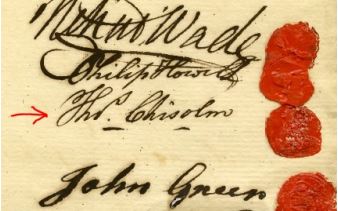 Wade
Philip Howell
Thos. Chisolm
John Green